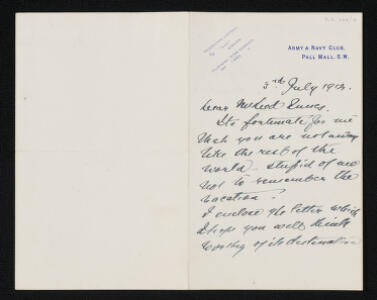 ARMY & NAVY CLUB,
PALL MALL. S.W.
3rd July 1912.
Dear McLeod Innes,
Its fortunate for me
that you are not away
like the rest of the
world - stupid of me
not to remember the
vacation!
I enclose the letter which
I hope you will think
worthy of its destination